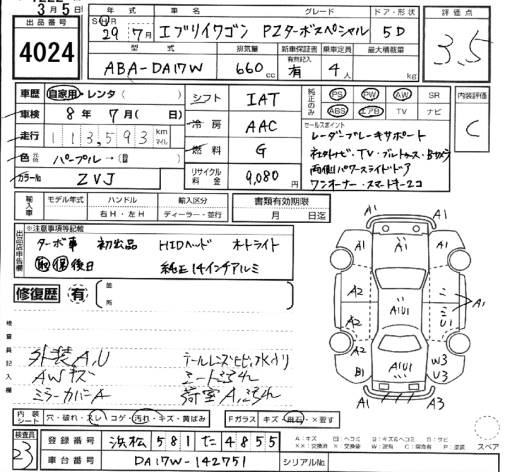 3月5日
出品番号
4024
年式 車名 グレード ドア・形状
S H R 29年 7月 エブリイワゴン PZターボスペシャル 5D
型式 排気量 新車保証書 乗車定員 最大積載量
ABA-DA17W 660cc 有 4人 kg
評価点
3.5
車歴 自家用・レンタ( )
車検 8年 7月( 日)
走行 113,593 km マイル
色 元色 パープル→(替 )
カラーNo ZVJ
シフト IAT
冷房 AAC
燃料 G
リサイクル料金 9,080円
純正のみ PS PW AW SR
ABS エアB TV ナビ
内装評価
C
セールスポイント
レーダーブレーキサポート
社外ナビ・TV・ブルートゥース・Bカメラ
両側パワースライドドア
ワンオーナー・スマートキー2コ
輸入車 モデル年式 ハンドル 輸入区分
右H・左H ディーラー・並行
書類有効期限
月 日迄
出品店申告欄
※注意事項等記載
ターボ車 初出品 HIDヘッド オートライト
取 保 後日 純正14インチアルミ
修復歴 有 箇所
検査員記入欄
外装A,U
AWキズ
ミラーカバーA
シートコスレ
荷室A,コスレ
A1 A1 A1
A1 A1
A2 A1U1 ミ
ミ A1
U1
A2 A1U1 W3
B1 U3
A1 A3
内装シート 穴・破れ・スレ・コゲ・汚れ・キズ・黄ばみ
Fガラス キズ・飛石・×要す
検査員
23
登録番号 浜松 581 た 4855
車台番号 DA17W-142751 シリアルNo.
スペア